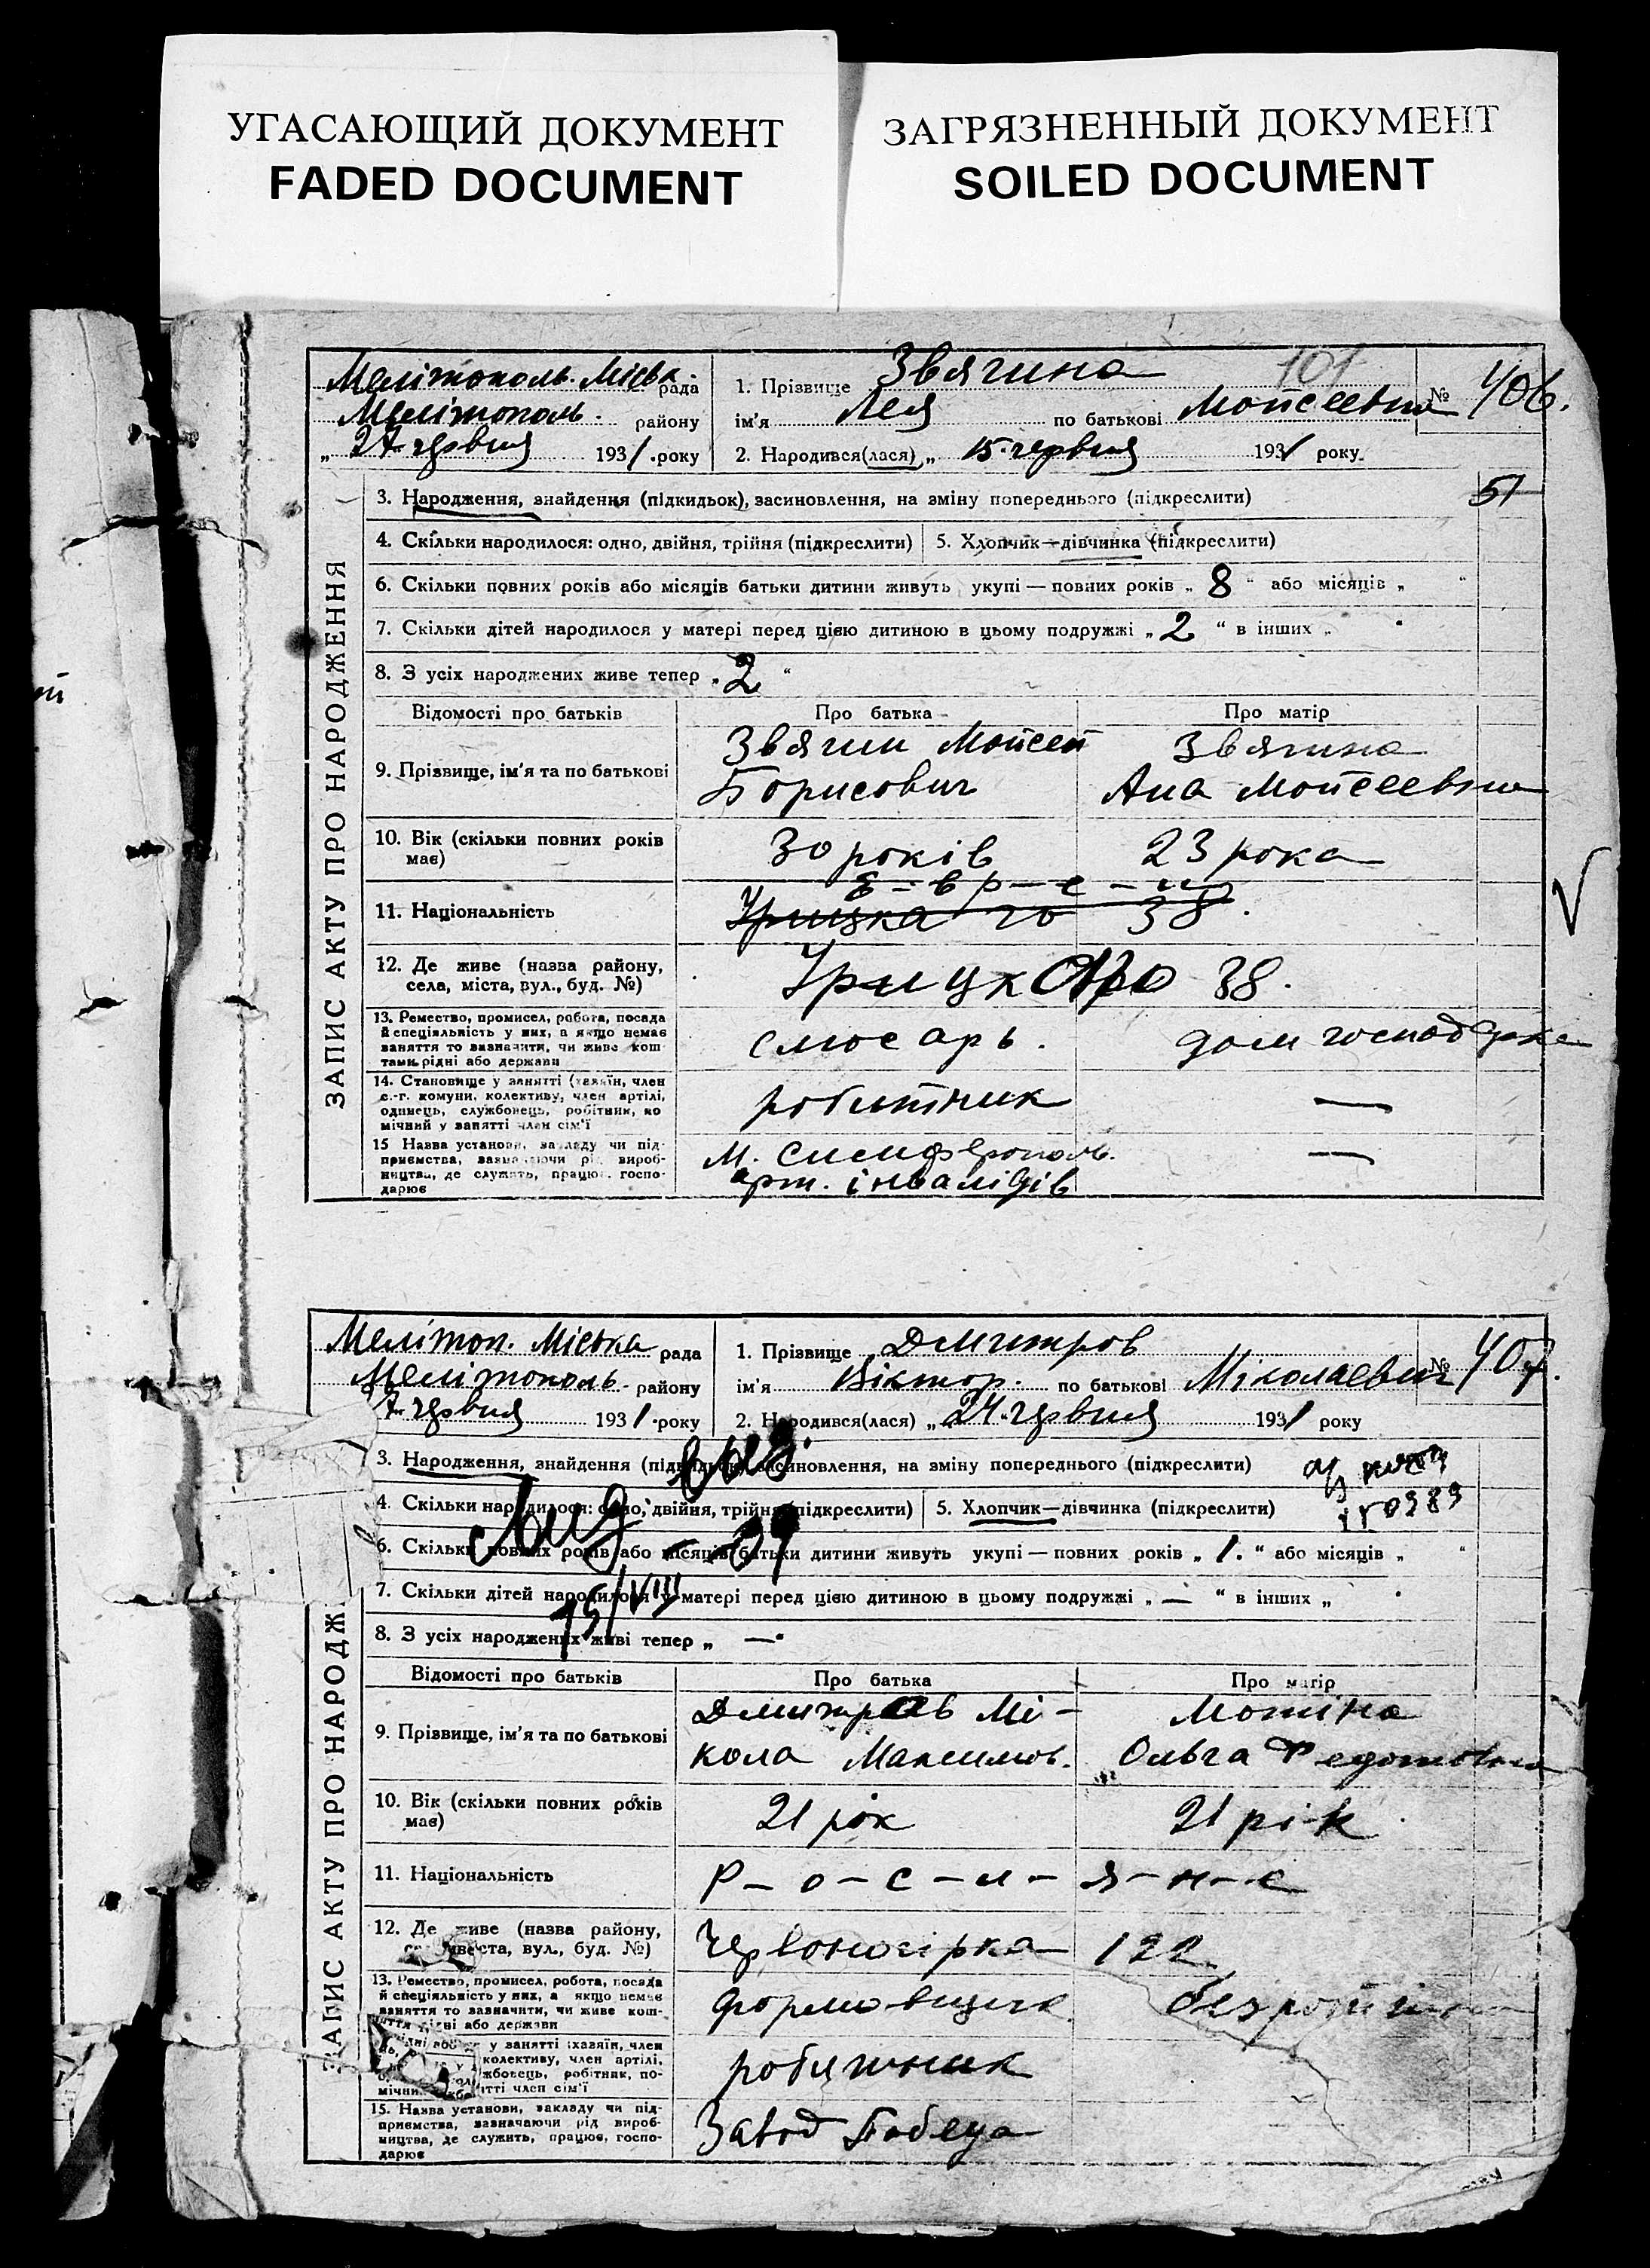 УГАСАЮЩИЙ ДОКУМЕНТ
FADED DOCUMENT
ЗАГРЯЗНЕННЫЙ ДОКУМЕНТ
SOILED DOCUMENT
ЗАПИС АКТУ ПРО НАРОДЖЕННЯ
Мелітополь. Міськ. рада
Мелітополь. району
„ 27 червня 1931 року
1. Прізвище Звягина 101
ім'я Лея по батькові Мойсеевна
№ 406.
2. Народився(лася) „ 15 червня 1931 року
3. Народження, знайдення (підкидьок), засиновлення, на зміну попереднього (підкреслити)
51
4. Скільки народилося: одно, двійня, трійня (підкреслити) 5. Хлопчик—дівчинка (підкреслити)
6. Скільки повних років або місяців батьки дитини живуть укупі — повних років „ 8 “ або місяців „ “
7. Скільки дітей народилося у матері перед цією дитиною в цьому подружжі „ 2 “ в інших „ “
8. З усіх народжених живе тепер „ 2 “
Відомості про батьків Про батька Про матір
9. Прізвище, ім'я та по батькові
Звягин Мойсей Звягина
Борисович Ана Мойсеевна
10. Вік (скільки повних років має)
30 років 23 рока
Є-вр-е-и
11. Національність Урицкаго 38.
12. Де живе (назва району,
села, міста, вул., буд. №)
Урицкого 38.
13. Ремество, промисел, робота, посада
й спеціяльність у них, а якщо немає
заняття то зазначити, чи живе кош
тами рідні або держави
слюсарь. дом господарка
14. Становище у занятті (хазяїн, член
с.-г. комуни, колективу, член артілі,
одинець, службовець, робітник, по
мічний у занятті член сім'ї
робитник —
15 Назва установи, закладу чи під-
приємства, зазначаючи рід вироб-
ництва, де служить, працює, госпо-
дарює
м. Симферополь.
арт. інвалідів
—
ЗАПИС АКТУ ПРО НАРОДЖ
Меліт­оп. Міська рада
Мелітополь. району
7 червня 1931 року
1. Прізвище Дмитров
ім'я Віктор. по батькові Міколаевич
№ 407.
2. Народився(лася) „ 24 червня 1931 року
3. Народження, знайдення (підкидьок), засиновлення, на зміну попереднього (підкреслити)
4. Скільки народилося: одно, двійня, трійня (підкреслити) 5. Хлопчик—дівчинка (підкреслити)
6. Скільки повних років або місяців батьки дитини живуть укупі — повних років „ 1. “ або місяців „ “
7. Скільки дітей народилося у матері перед цією дитиною в цьому подружжі „ — “ в інших „ “
15/VIII
8. З усіх народжених живі тепер „ — “
Відомості про батьків Про батька Про матір
9. Прізвище, ім'я та по батькові
Дмитров Мі- Мотіна
кола Максимов. Ольга Федотовна
10. Вік (скільки повних років має)
21 рок 21 рік
11. Національність Р-о-с-и-я-н-е
12. Де живе (назва району,
міста, вул., буд. №)
Червоногірка 122
13. Ремество, промисел, робота, посада
й спеціяльність у них, а якщо немає
заняття то зазначити, чи живе кош-
рідні або держави
формовщик
у занятті (хазяїн, член
колективу, член артілі,
робітник, по-
член сім'ї
робитник
15. Назва установи, закладу чи під-
приємства, зазначаючи рід вироб-
ництва, де служить, працює, госпо-
дарює
Завод Победа